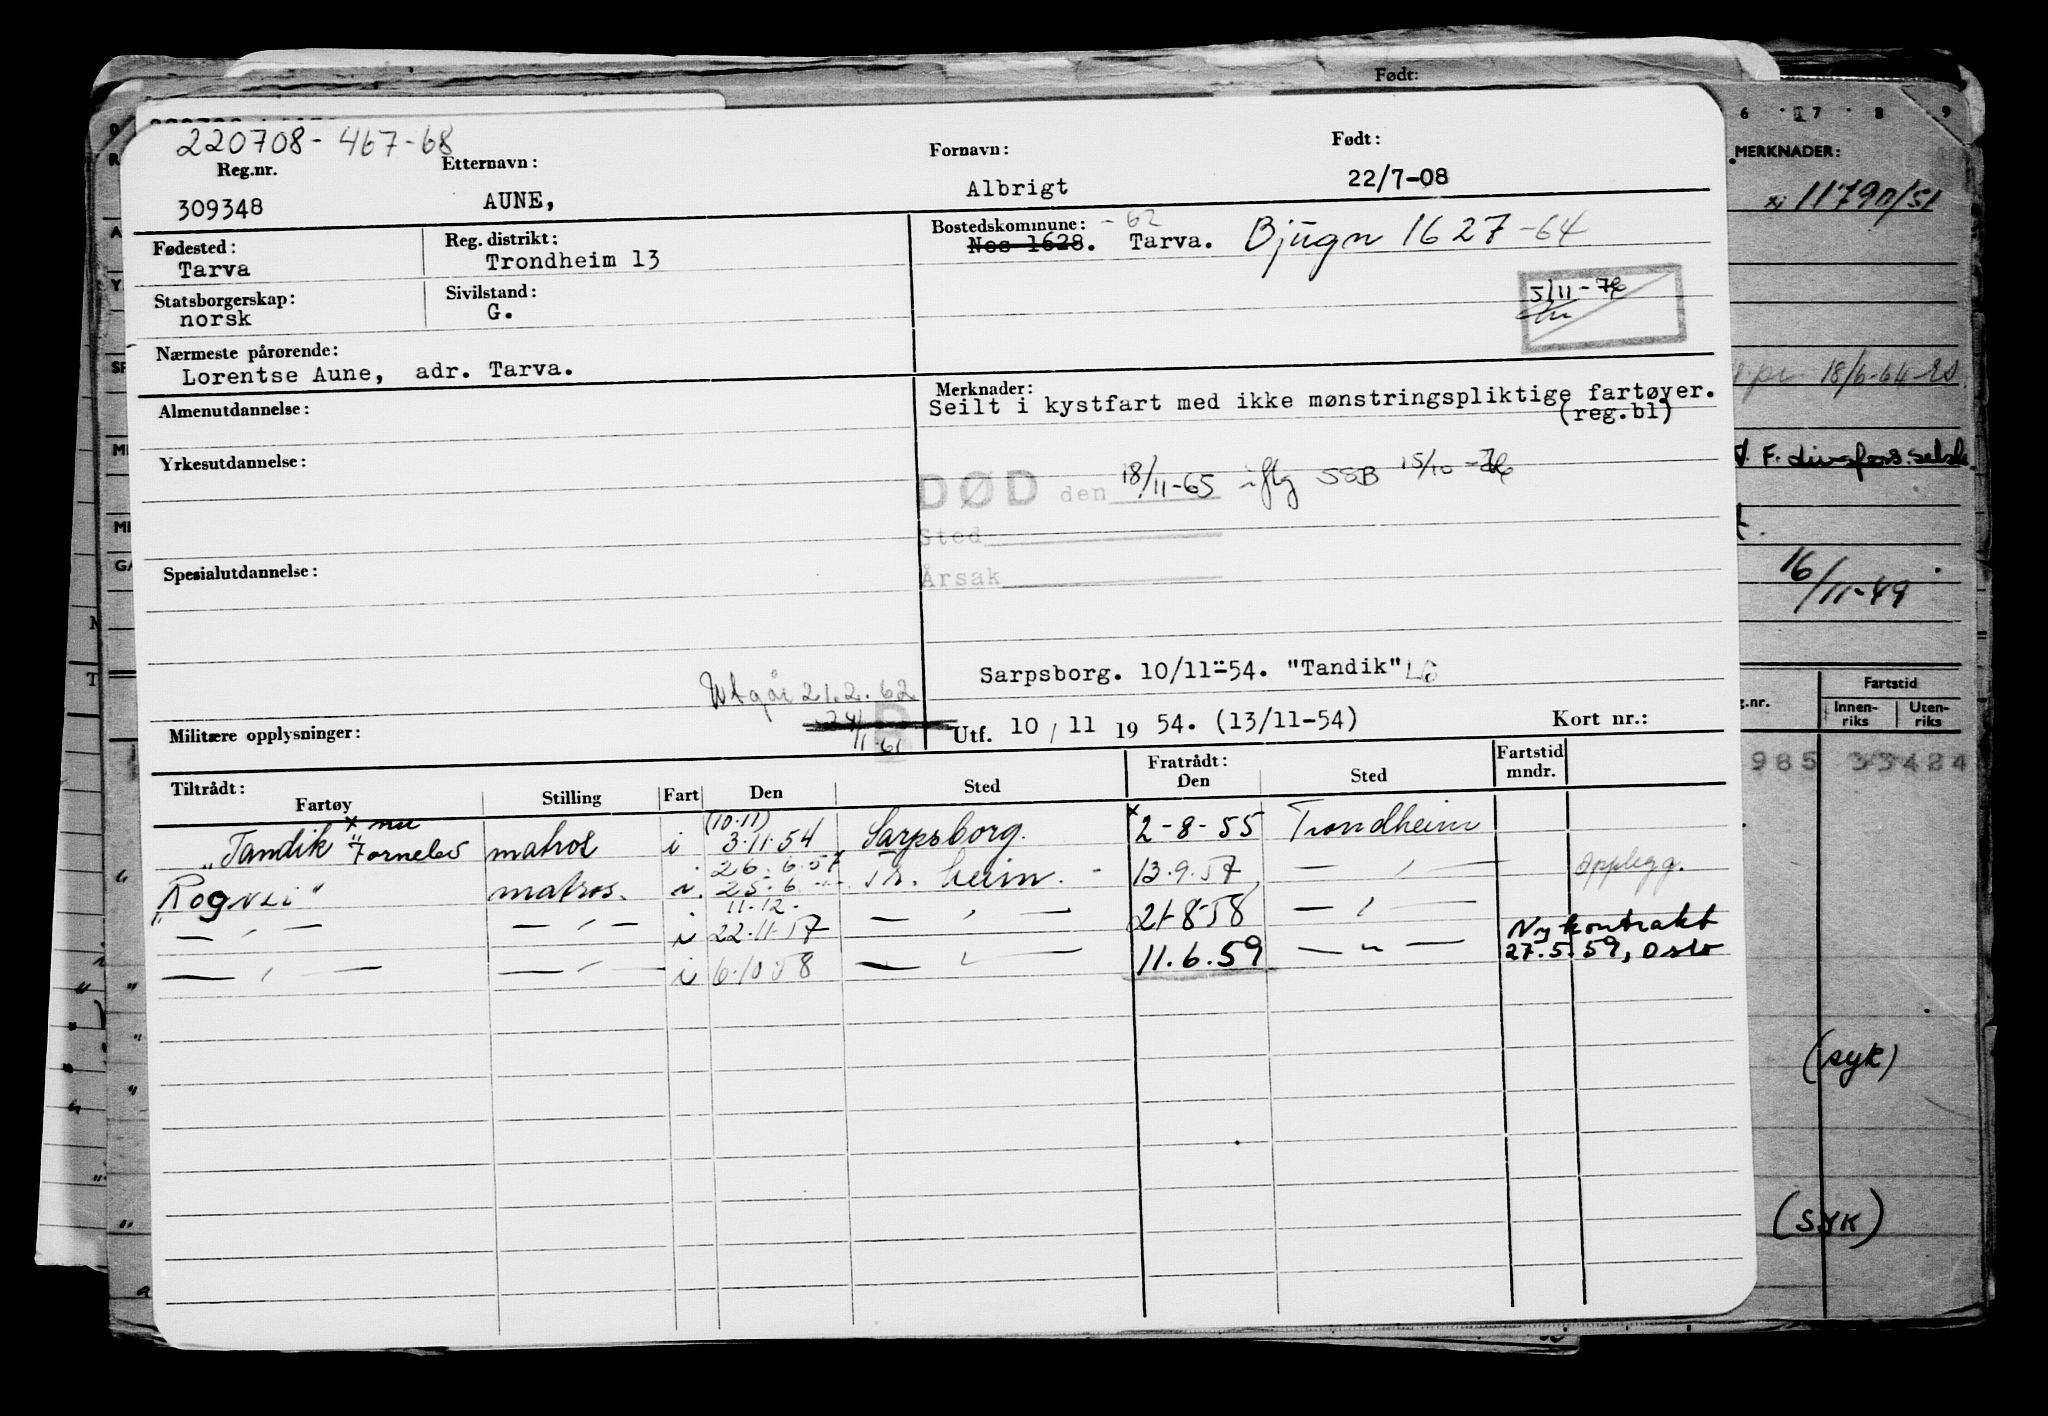 Født:
220708-467-68
Reg.nr.
Etternavn:
Fornavn:
Født:
309348
AUNE,
Albrigt
22/7-08
Fødested:
Tarva
Reg. distrikt:
Trondheim 13
Bostedskommune: -62
Nes 1628. Tarva. Bjugn 1627-64
Statsborgerskap:
norsk
Sivilstand:
G.
5/11-76
Nærmeste pårørende:
Lorentse Aune, adr. Tarva.
Almenutdannelse:
Merknader:
Seilt i kystfart med ikke mønstringspliktige fartøyer.
(reg.bl)
Yrkesutdannelse:
DØD den 18/11-65 iflg SSB 15/10-76
Sted
Årsak
Spesialutdannelse:
Sarpsborg. 10/11-54. "Tandik"
Utgår 21.2.62
24/1 61
B
Militære opplysninger:
Utf. 10/11 19 54. (13/11-54)
Kort nr.:
Tiltrådt:
Fratrådt:
Fartstid
mndr.
Fartøy
Stilling
Fart
Den
Sted
Den
Sted
(10.11)
x nu
"Tandik" Fornebo matros i 3.11.54 Sarpsborg. x 2-8-55 Trondheim
26.6.57
"Rognei" matros. i 25.6 -"- Tr.heim. 13.9.57 — " — Opplegg.
11.12.
— " — — " — i 22.11.57 — " — 21-8-58 — " —
Ny kontrakt
— " — — " — i 6.10.58 — " — 11.6.59 — " — 27.5.59, Oslo
6 7 8 9
MERKNADER:
11790/51
18/6-64
F. livsfors.selsk.
16/11-49
Fartstid
Innen-
riks
Uten-
riks
985 33424
(syk)
(SYK)